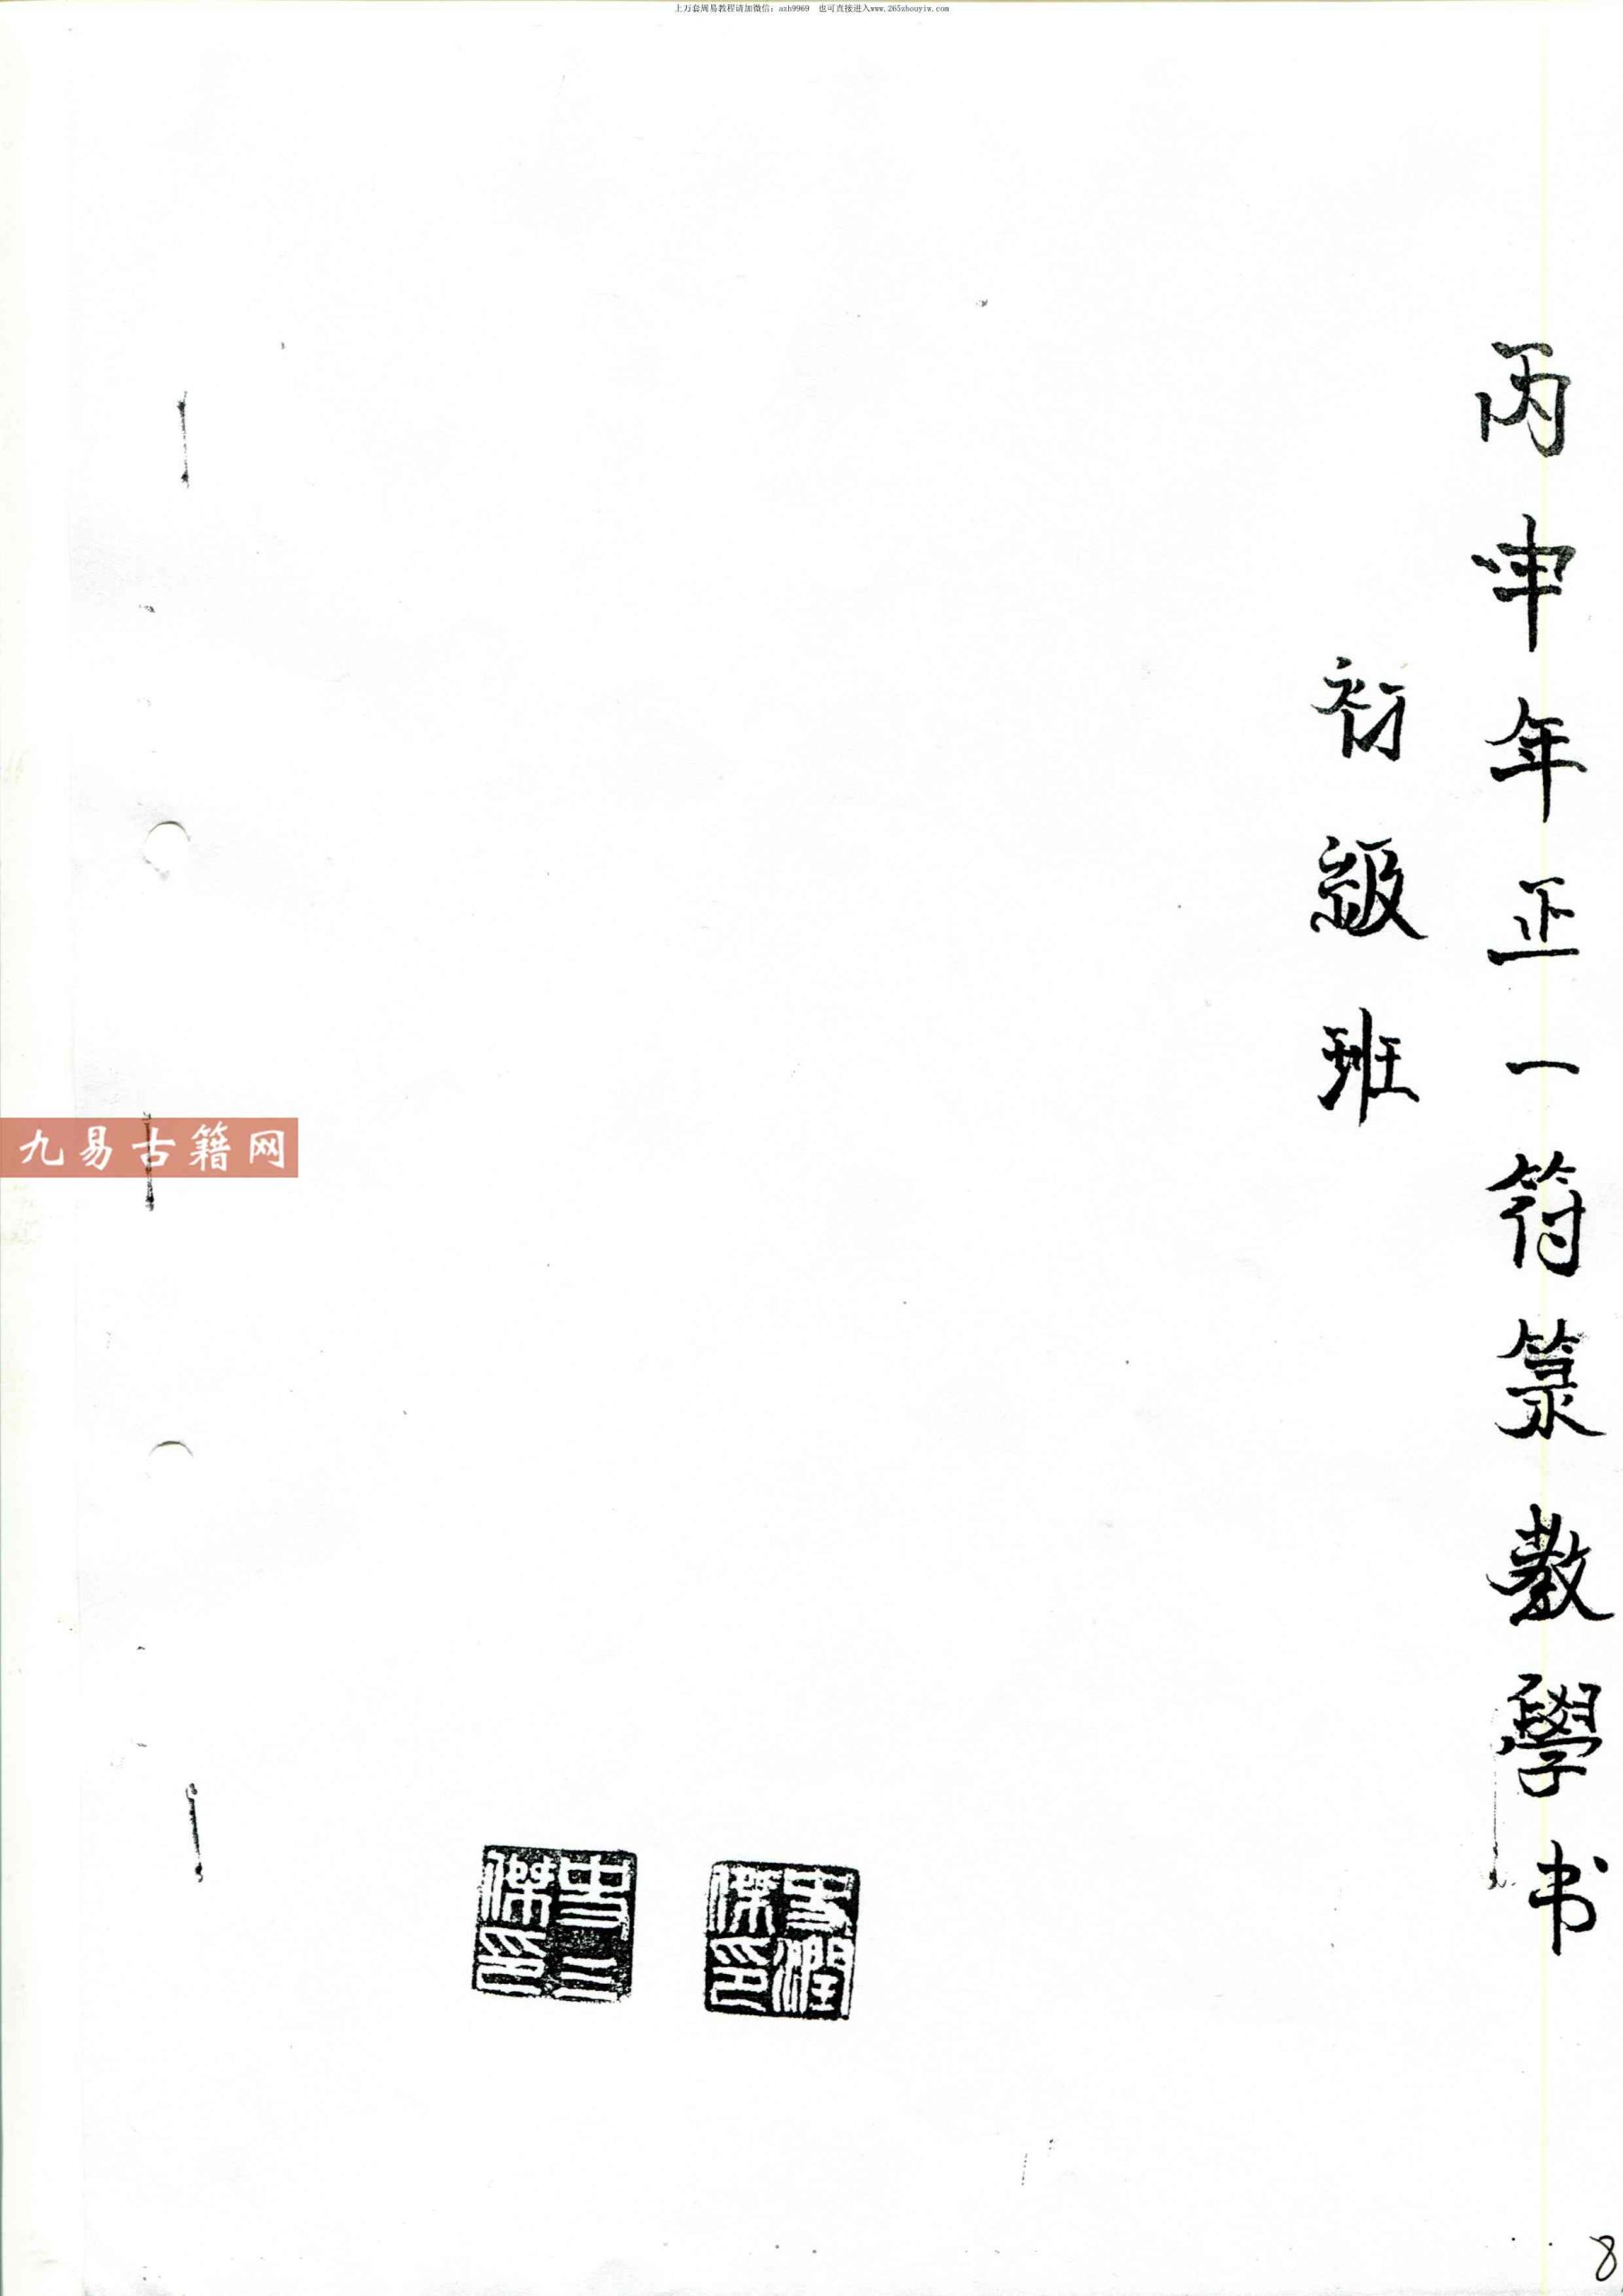 上万套周易教程请加微信：azh9969 也可直接进入www.265zhouyiw.com
丙申年正一符箓教學书
初級班
九易古籍网
史潤傑印
史二傑印
8